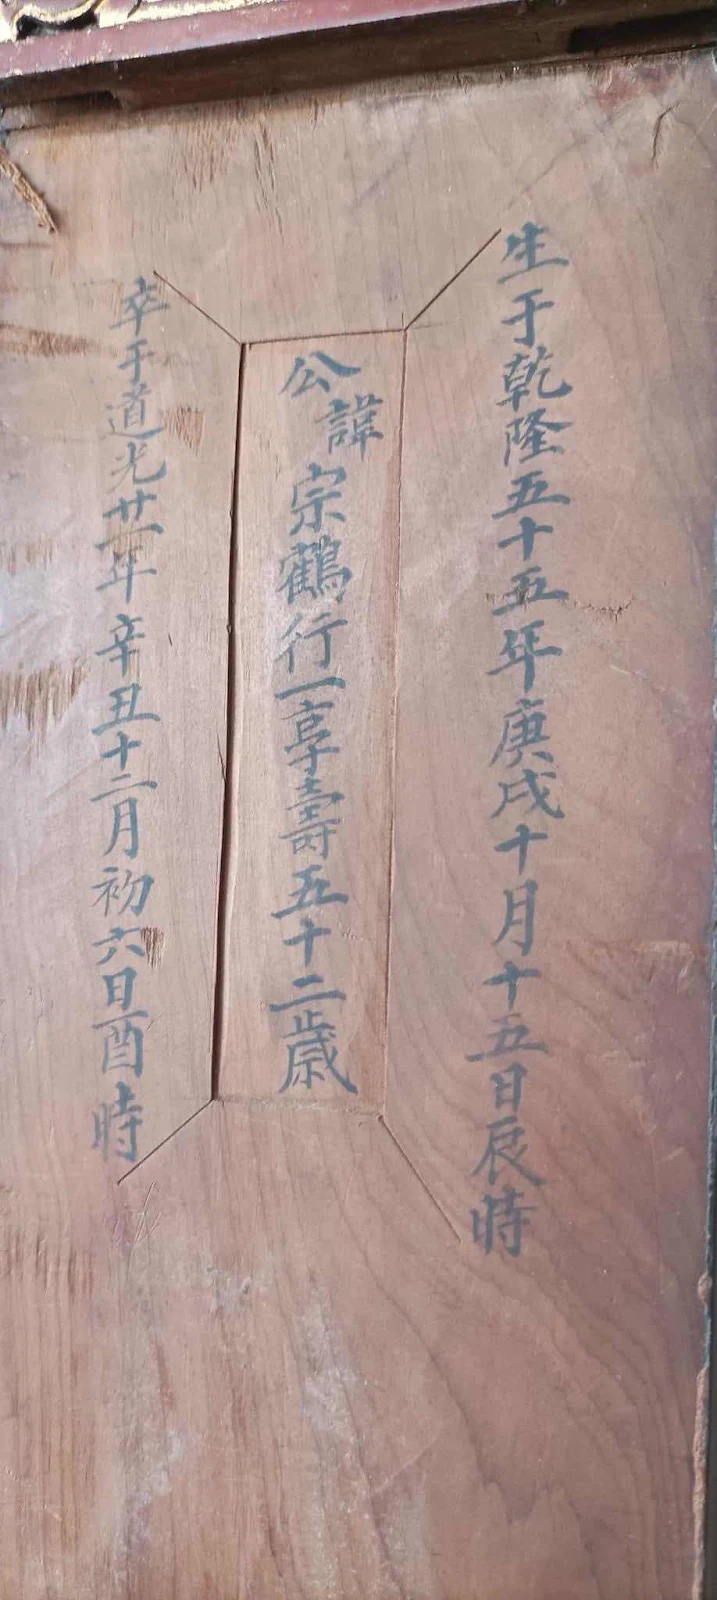 生于乾隆五十五年庚戌十月十五日辰時
公諱宗鶴行一享壽五十二歲
卒于道光廿一年辛丑十二月初六日酉時